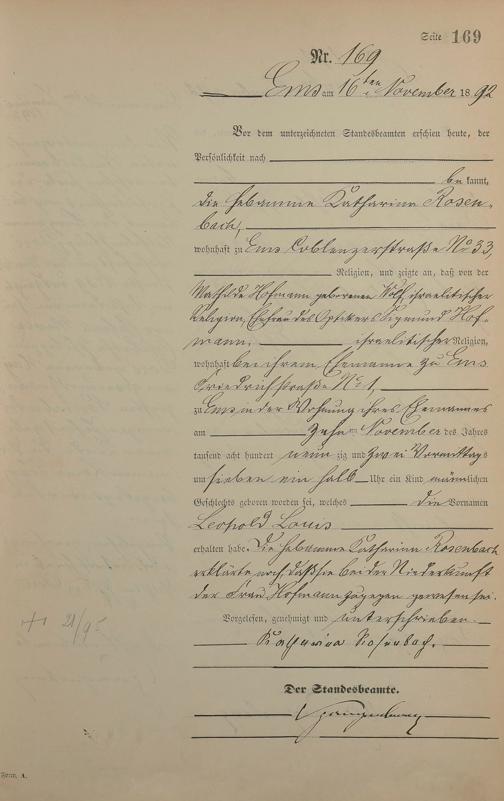 Seite 169
Nr. 169
Ems am 16ten November 1892
Vor dem unterzeichneten Standesbeamten erschien heute, der
Persönlichkeit nach
bekannt,
die Hebamme Katharina Rosen-
bach,
wohnhaft zu Ems Coblenzerstraße No 33,
Religion, und zeigte an, daß von der
Mathilde Hofmann geborenen Wolf, israelitischer
Religion, Ehefrau des Optikers Sigmund Hof-
mann, israelitischer Religion,
wohnhaft bei ihrem Ehemanne zu Ems
Friedrichstraße No 1
zu Ems in der Wohnung ihres Ehemannes
am zehn ten November des Jahres
tausend acht hundert neun zig und zwei Vormittags
um sieben ein halb Uhr ein Kind männlichen
Geschlechts geboren worden sei, welches die Vornamen
Leopold Louis
erhalten habe. Die Hebamme Katharina Rosenbach
erklärte noch, daß sie bei der Niederkunft
der Frau Hofmann zugegen gewesen sei.
Vorgelesen, genehmigt und unterschrieben
Katharina Rosenbach.
Der Standesbeamte.
Form. A.